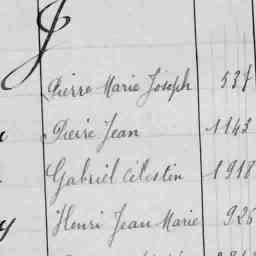 Pierre Marie Joseph 537
Pierre Jean 1143
Gabriel Célestin 1918
y Henri Jean Marie 926